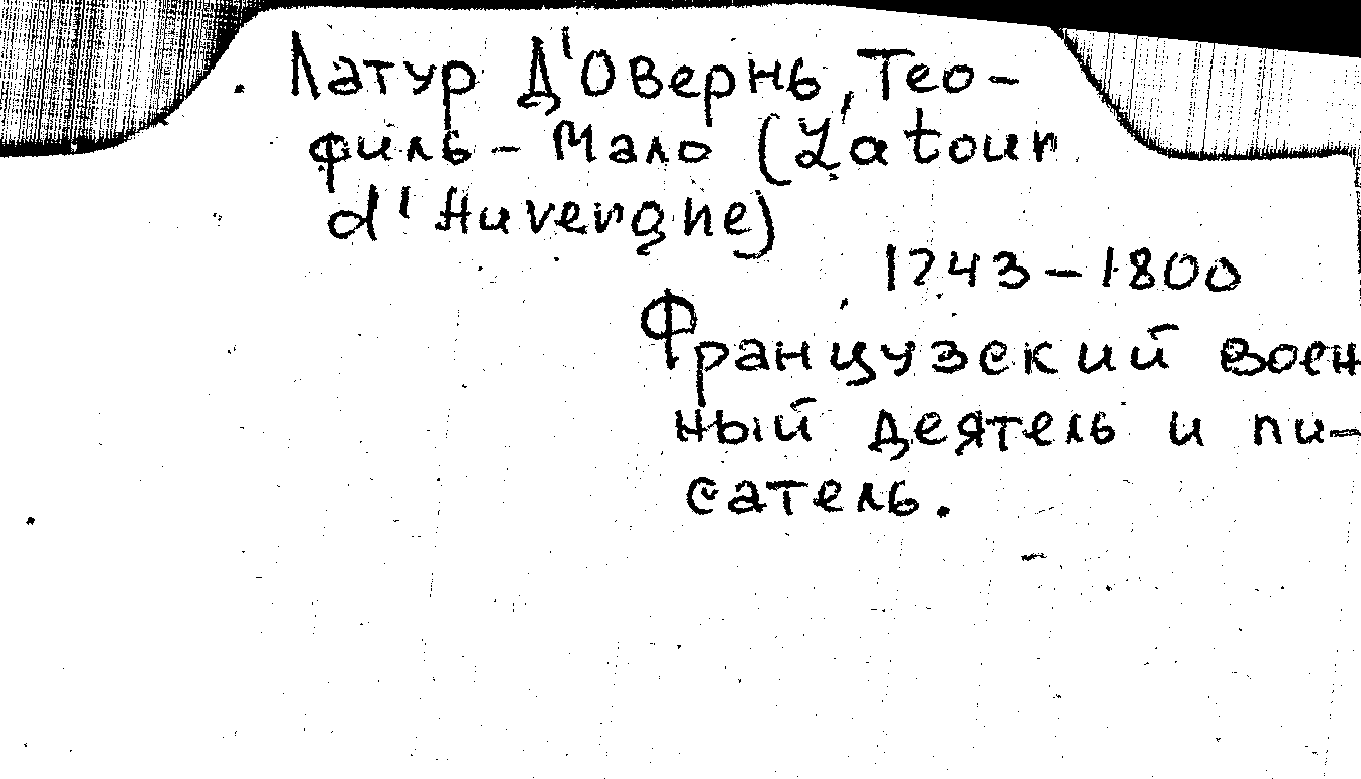 Латур Д'Овернь, Тео-
филь - Мало (Latour
d'Auvergne)
1743 - 1800
Французский воен
ный деятель и пи-
сатель.